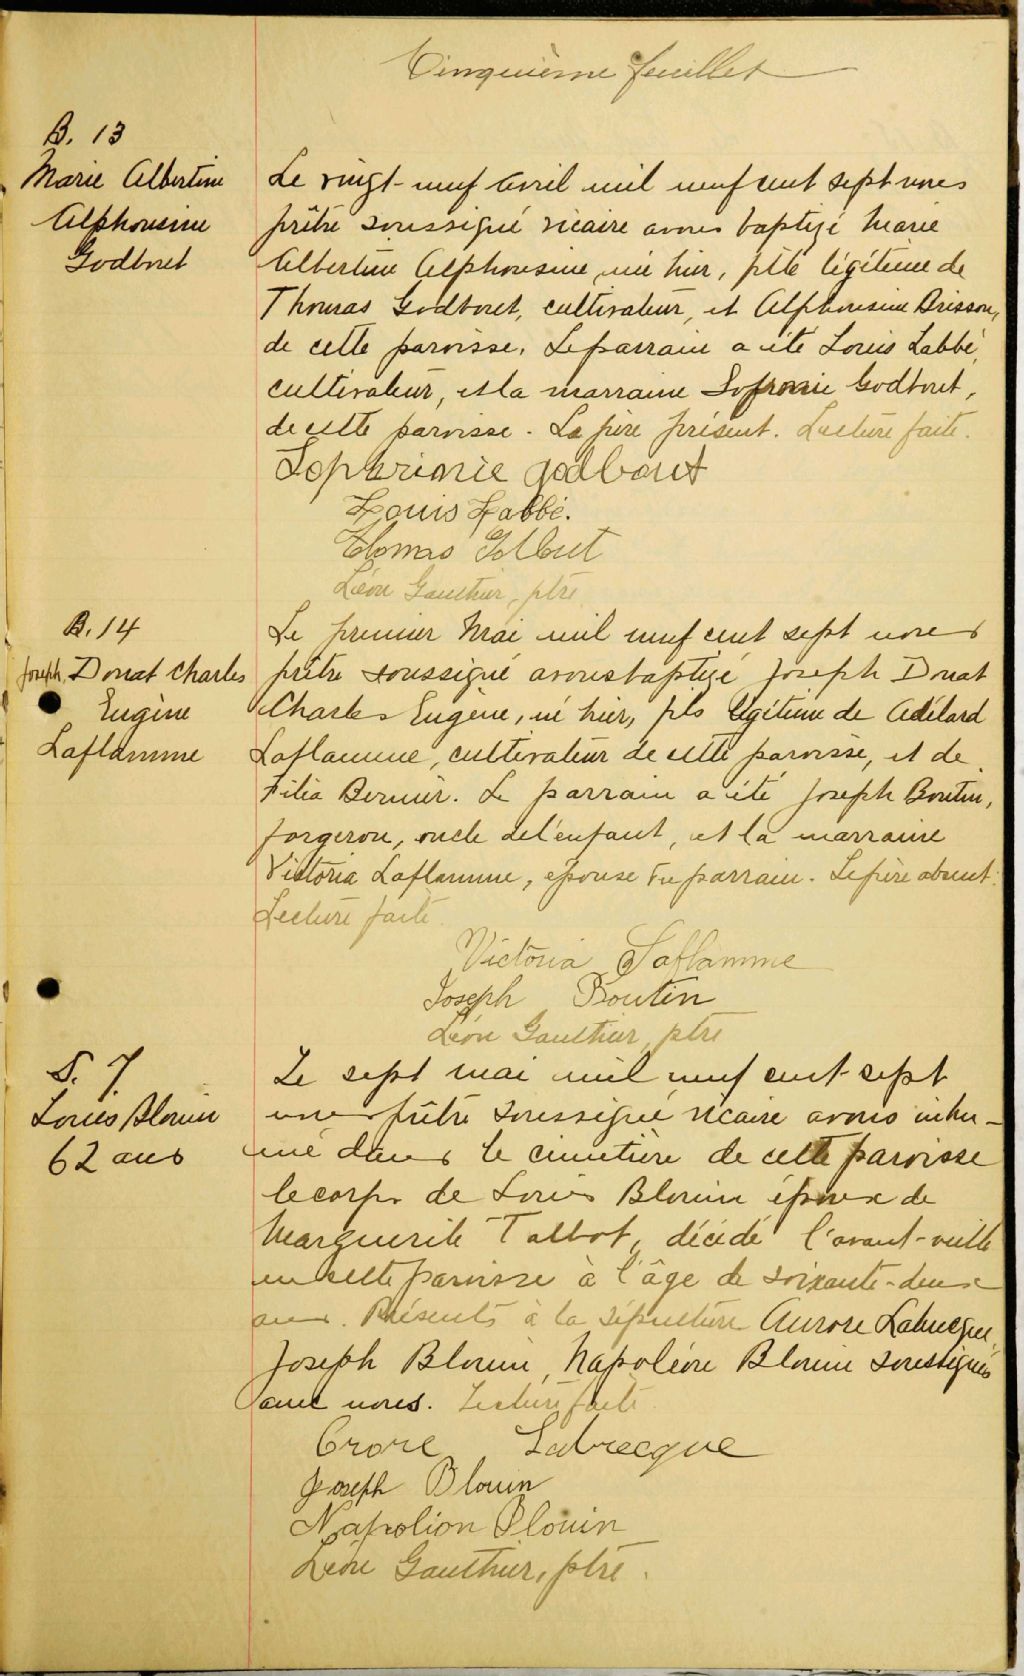 Cinquième feuillet
B. 13
Marie Albertine
Alphonsine
Godbout
Le vingt-neuf Avril mil neuf cent sept nous
prêtre soussigné vicaire avons baptizé Marie
Albertine Alphonsine, née hier, fille légitime de
Thomas Godbout, cultivateur, et Alphonsine Brisson,
de cette paroisse. Le parrain a été Louis Labbé,
cultivateur, et la marraine Sofronie Godbout,
de cette paroisse. Le père présent. Lecture faite.
Sophronie Godbout
Louis Labbé.
Thomas Golbut
Léon Gauthier, ptre
B. 14
Joseph Donat Charles
Eugène
Laflamme
Le premier Mai mil neuf cent sept nous
prêtre soussigné avons baptizé Joseph Donat
Charles Eugène, né hier, fils légitime de Adélard
Laflamme, cultivateur de cette paroisse, et de
Filia Bernier. Le parrain a été Joseph Boutin,
forgeron, oncle de l'enfant, et la marraine
Victoria Laflamme, épouse du parrain. Le père absent.
Lecture faite.
Victoria Laflamme
Joseph Boutin
Léon Gauthier, ptre
S. 7
Louis Blouin
62 ans
Le sept mai mil neuf cent-sept
nous prêtre soussigné vicaire avons inhu-
mé dans le cimetière de cette paroisse
le corps de Louis Blouin époux de
Marguerite Talbot, décédé l'avant-veille
en cette paroisse à l'âge de soixante-deux
ans. Présents à la sépulture Aurore Labrecque,
Joseph Blouin, Napoléon Blouin soussignés
avec nous. Lecture faite.
Orore Labrecque
Joseph Blouin
Napolion Blouin
Léon Gauthier, ptre.